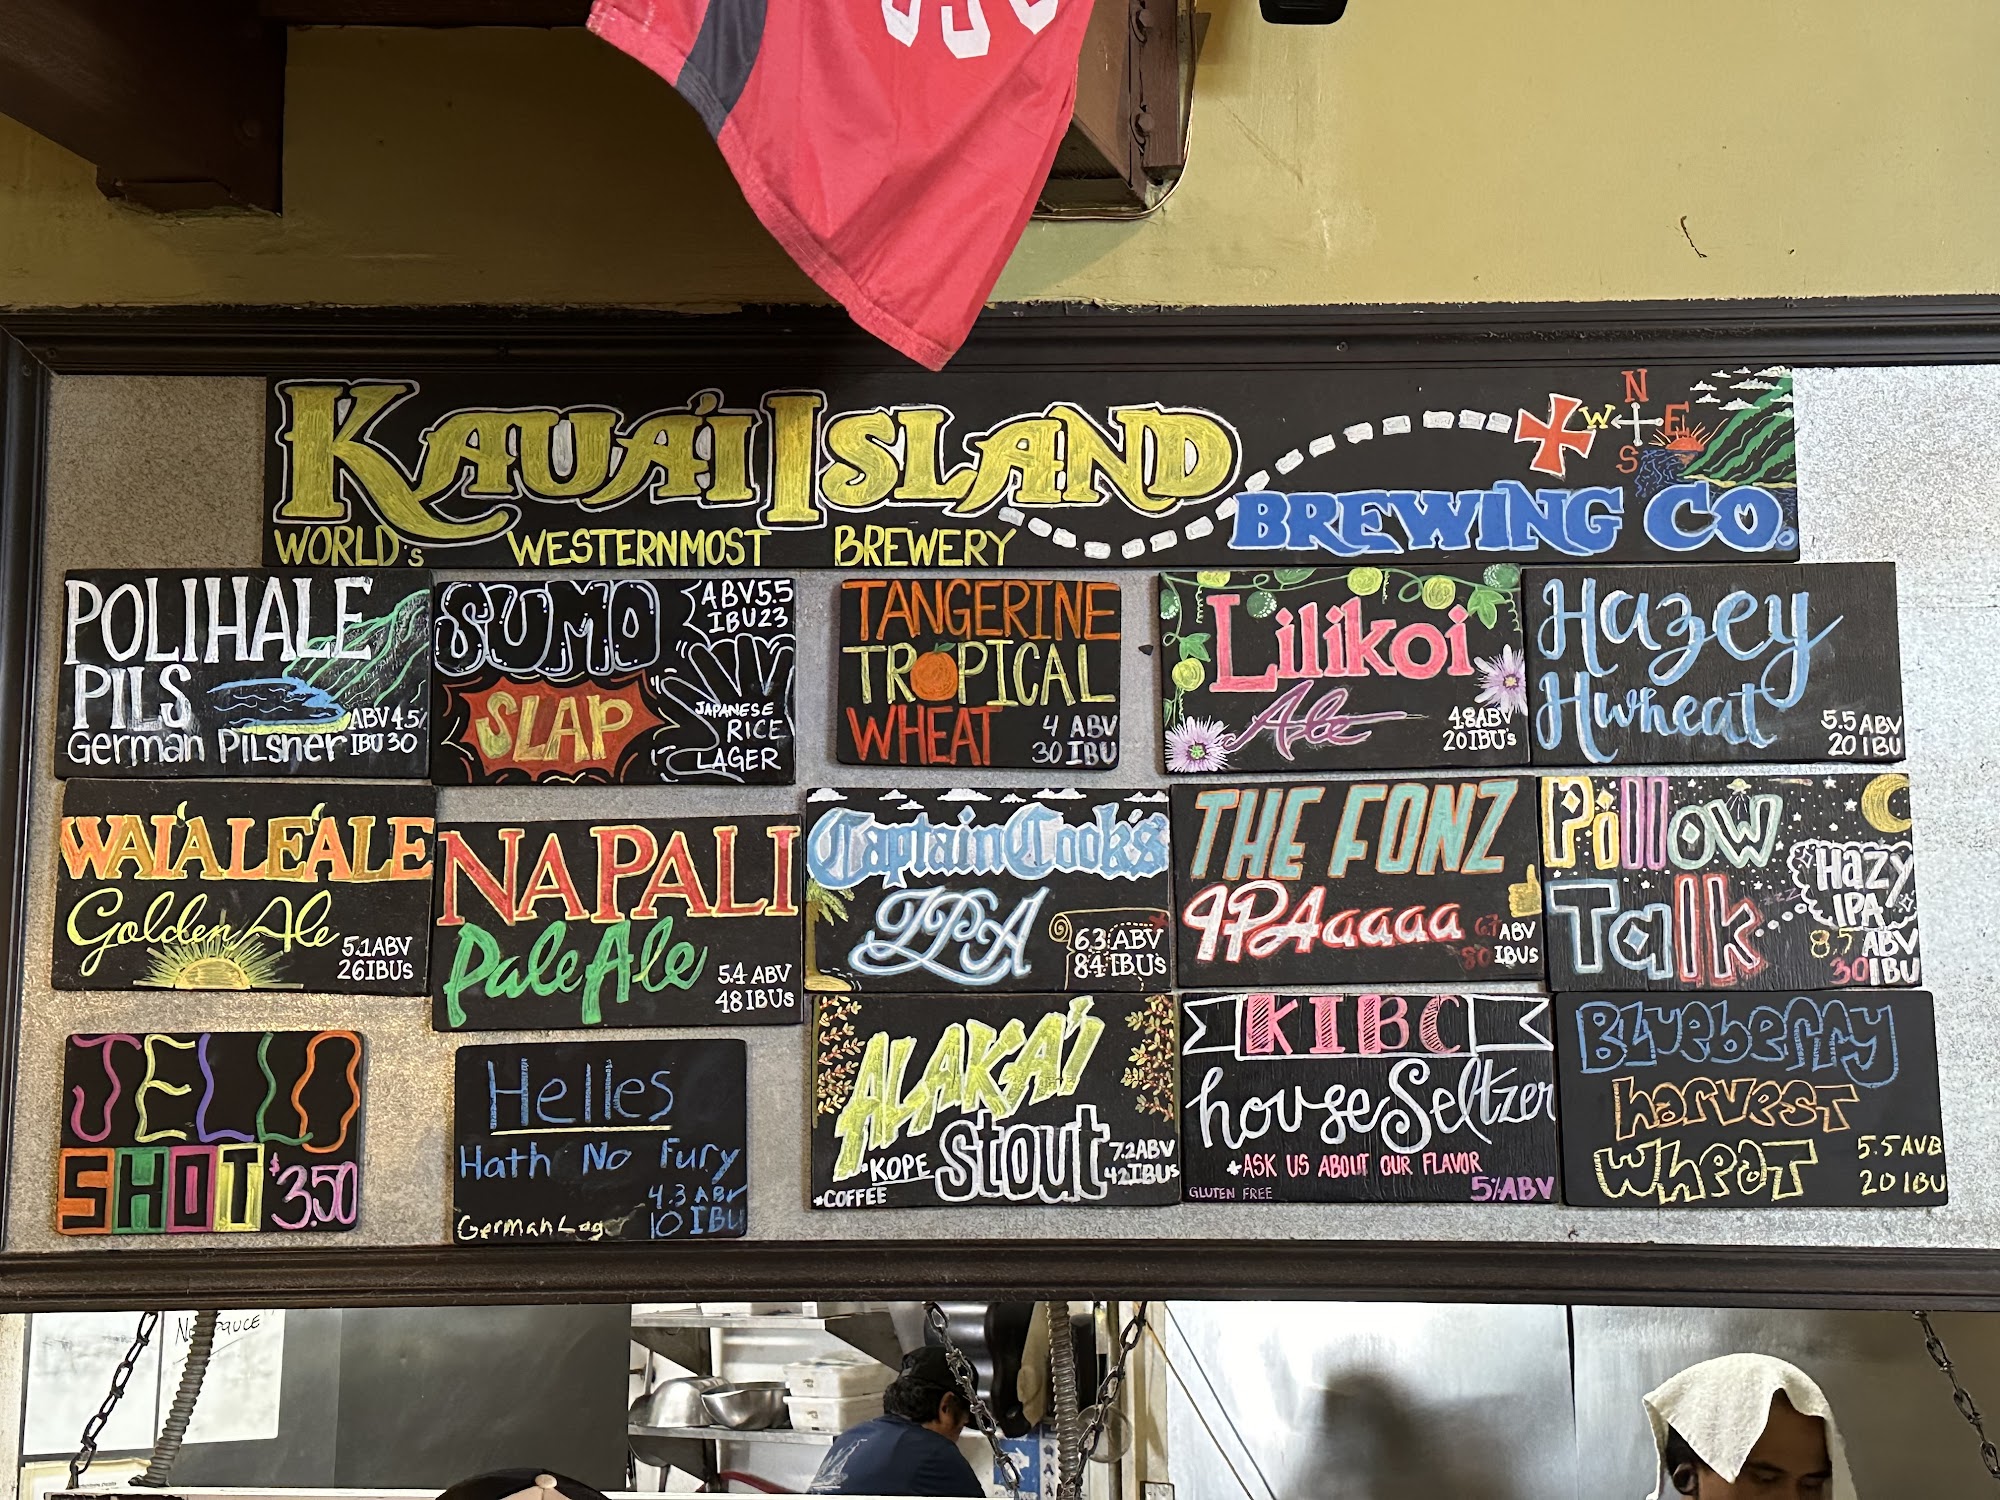 KAUA'I ISLAND
BREWING CO.
N
W E
S
WORLD's WESTERNMOST BREWERY
POLIHALE
PILS
German Pilsner
ABV 4.5%
IBU 30
SUMO
SLAP
ABV 5.5
IBU 23
JAPANESE
RICE
LAGER
TANGERINE
TROPICAL
WHEAT
4 ABV
30 IBU
Lilikoi
Ale
4.8 ABV
20 IBU's
Hazey
Hwheat
5.5 ABV
20 IBU
WAI'ALE'ALE
Golden Ale
5.1 ABV
26 IBUs
NAPALI
Pale Ale
5.4 ABV
48 IBUs
Captain Cook's
IPA
6.3 ABV
84 IBU's
THE FONZ
IPAaaaa
6.7 ABV
80 IBUs
Pillow
Talk
zzz
Hazy
IPA
8.5 ABV
30 IBU
JELLO
SHOT $3.50
Helles
Hath No Fury
4.3 ABV
German Lager 10 IBU
ALAKA'I
Stout
*KOPE
*COFFEE
7.2 ABV
42 IBUs
KIBC
house Seltzer
*ASK US ABOUT OUR FLAVOR
GLUTEN FREE 5% ABV
BLueberry
harvest
wheat
5.5 AVB
20 IBU